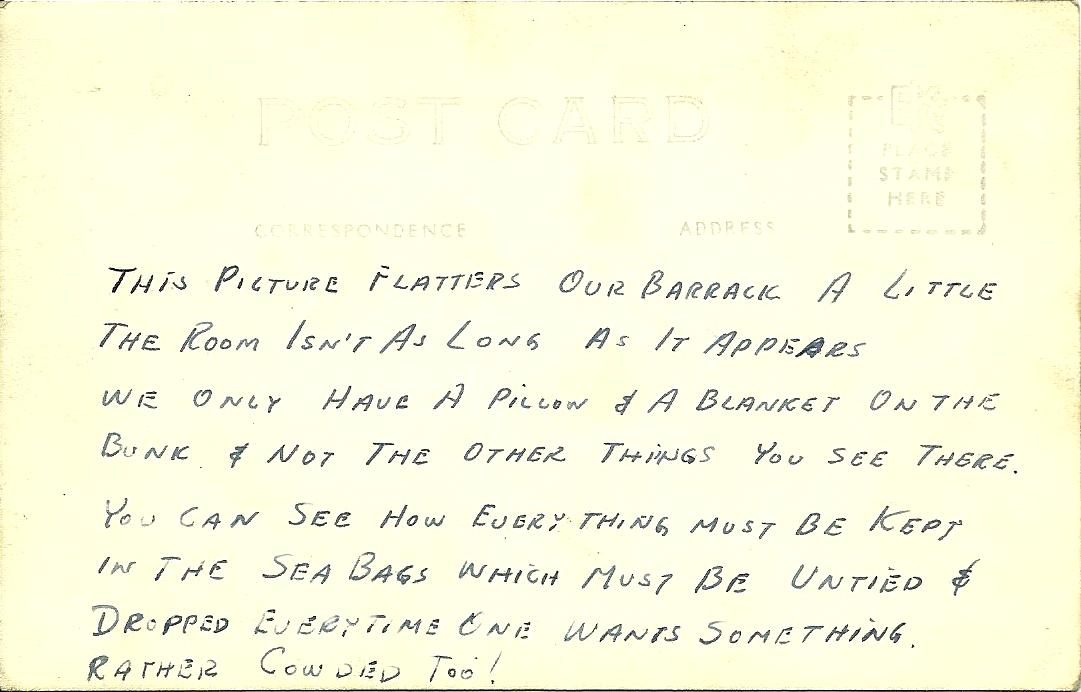 POST CARD
EKC
PLACE
STAMP
HERE
CORRESPONDENCE
ADDRESS
THIS PICTURE FLATTERS OUR BARRACK A LITTLE
THE ROOM ISN'T AS LONG AS IT APPEARS
WE ONLY HAVE A PILLOW & A BLANKET ON THE
BUNK & NOT THE OTHER THINGS YOU SEE THERE.
YOU CAN SEE HOW EVERYTHING MUST BE KEPT
IN THE SEA BAGS WHICH MUST BE UNTIED &
DROPPED EVERYTIME ONE WANTS SOMETHING.
RATHER COWDED TOO!